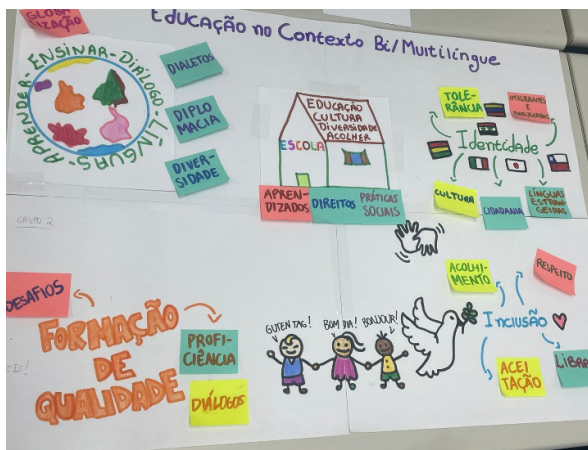 Educação no Contexto Bi/Multilíngue
GLOBA
LIZAÇÃO
APRENDER-ENSINAR-DIÁLOGO-LÍNGUAS-
DIALETOS
DIPLO
MACIA
DIVER-
SIDADE
EDUCAÇÃO
CULTURA
DIVERSIDADE
ACOLHER
ESCOLA
APREN-
DIZADOS
DIREITOS
PRÁTICAS
SOCIAIS
TOLE-
RÂNCIA
IMIGRANTES
E REFUGIADOS
Identidade
CULTURA
CIDADANIA
LÍNGUAS
ESTRAN-
GEIRAS
GRUPO 2
DESAFIOS
FORMAÇÃO
DE
QUALIDADE
PROFI-
CIÊNCIA
DIÁLOGOS
GUTEN TAG!
BOM DIA!
BONJOUR!
ACOLHI-
MENTO
RESPEITO
INCLUSÃO
ACEI
TAÇÃO
LIBRAS